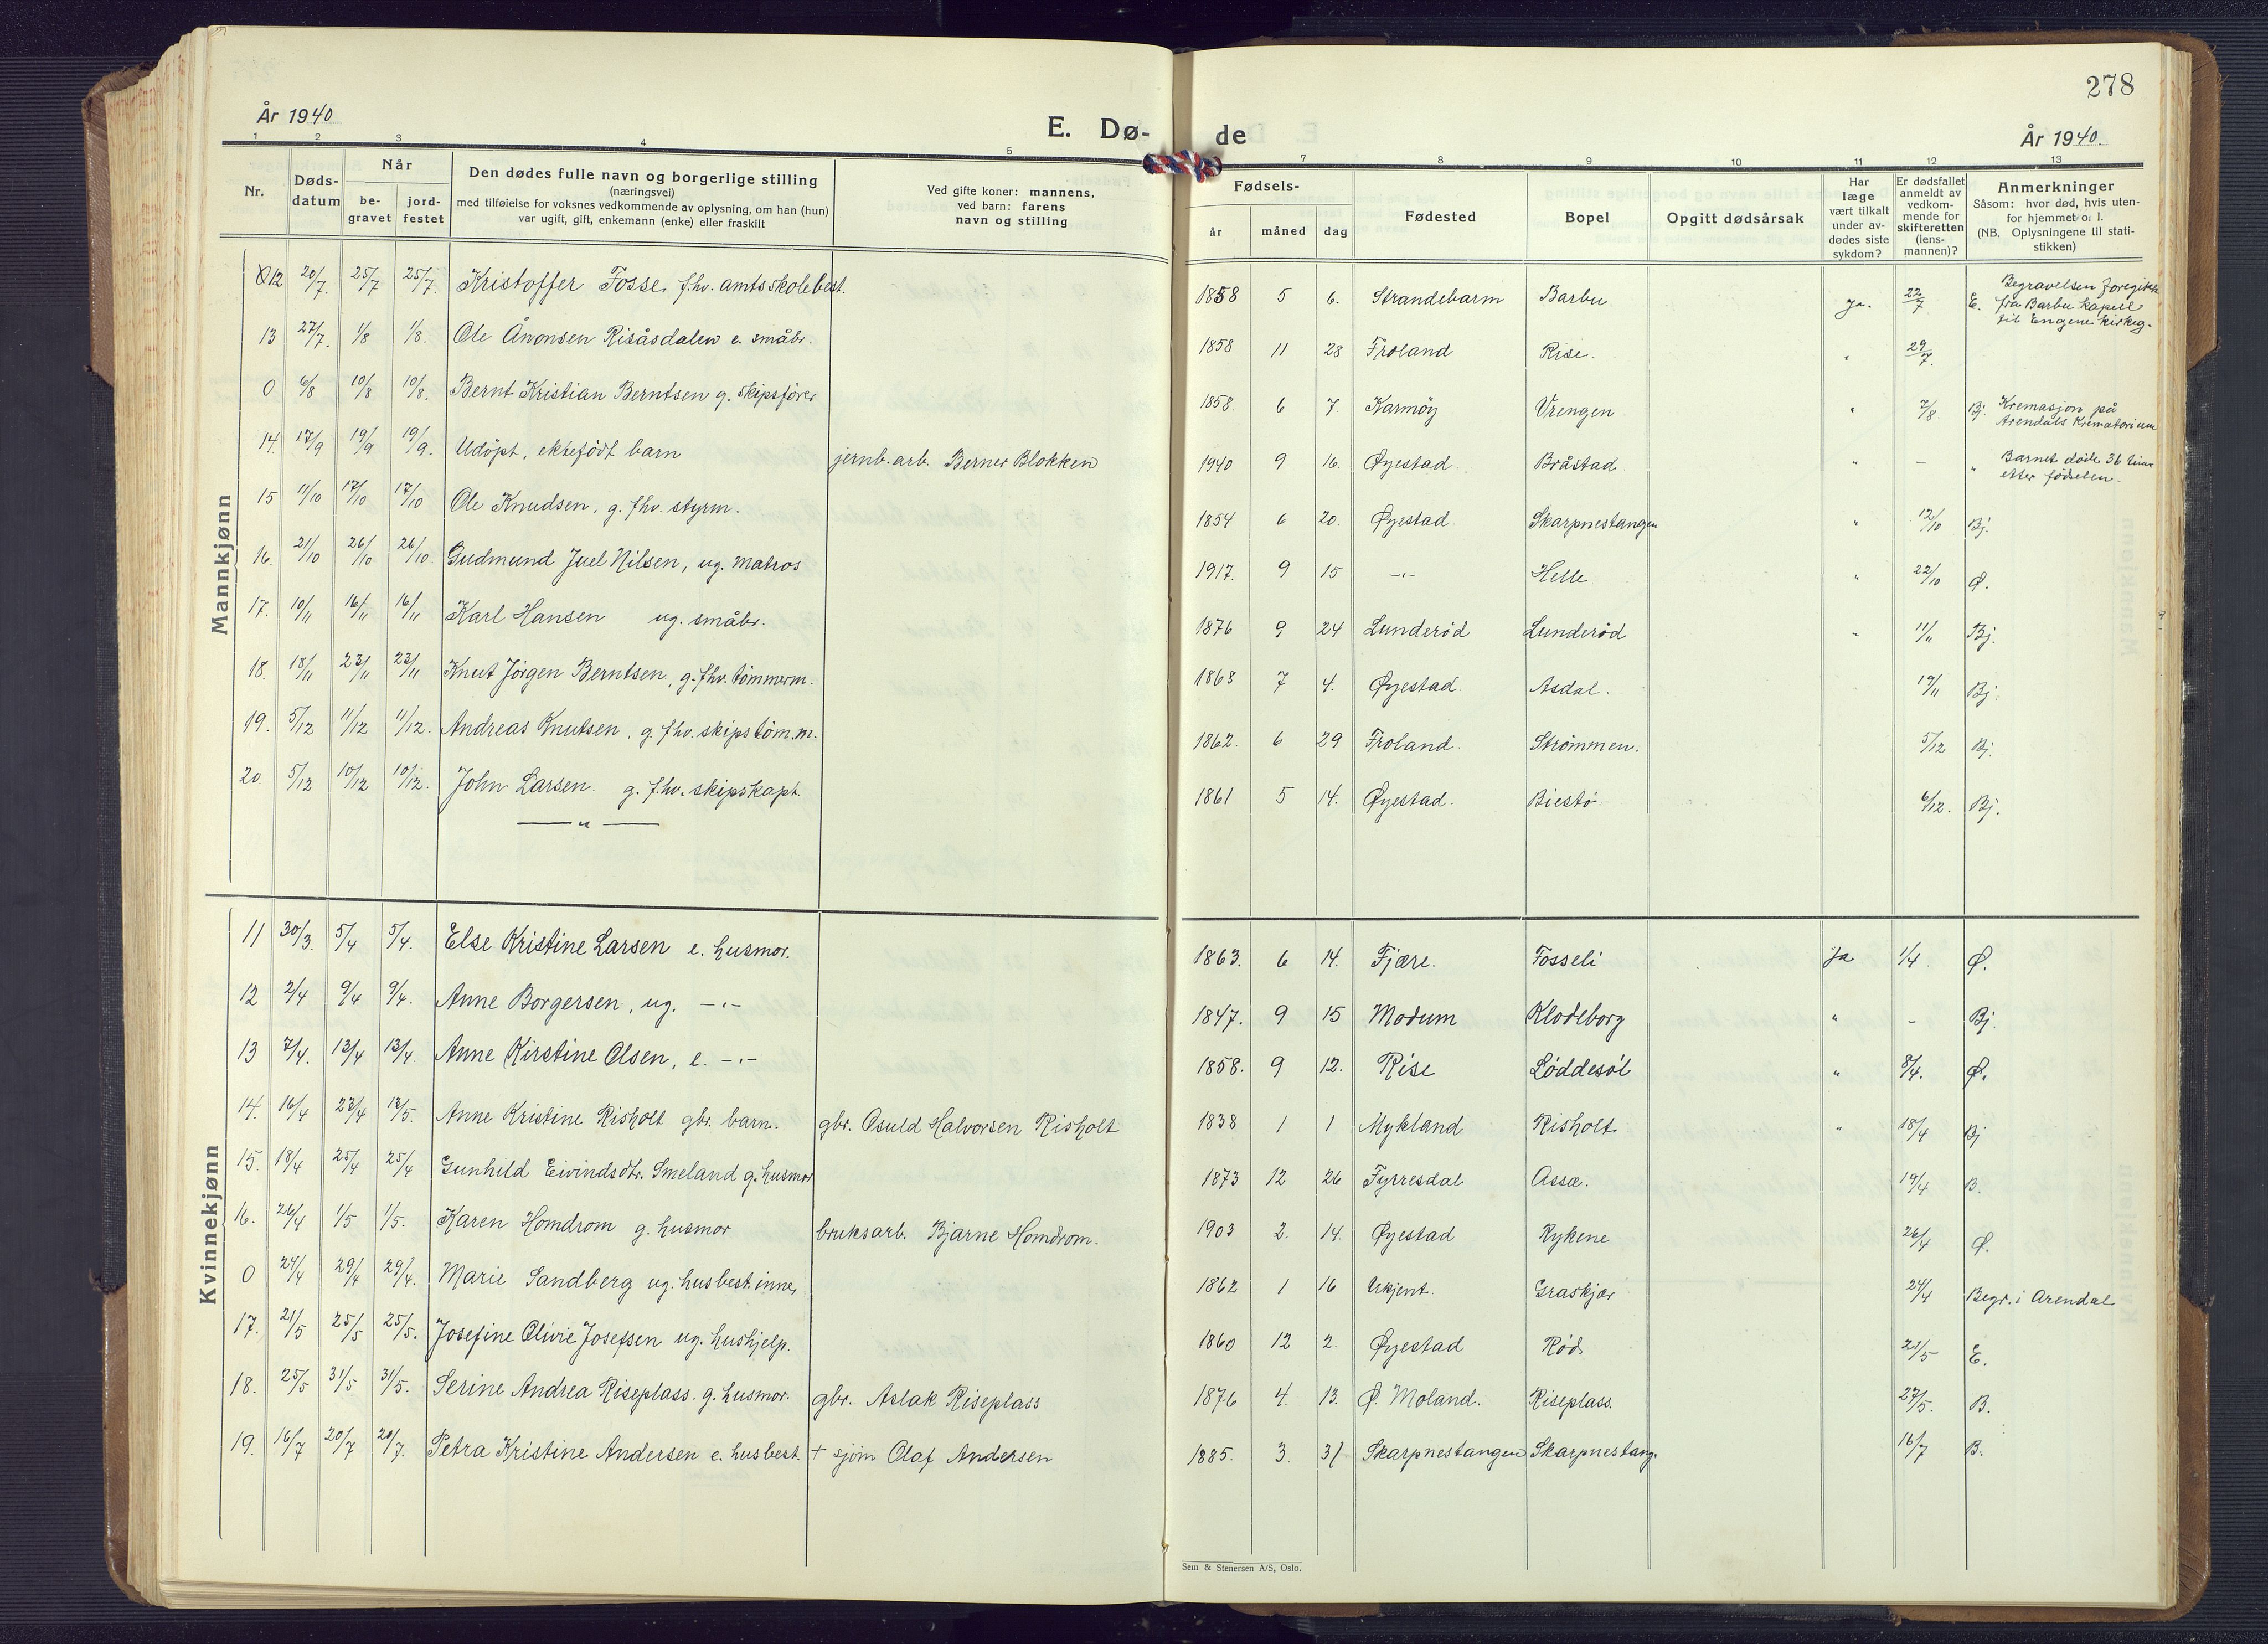 278
År 1940
E. Dø-
de
År 1940.
1 2 3 4 5 7 8 9 10 11 12 13
Nr.
Døds-
datum
Når
be-
gravet
jord-
festet
Den dødes fulle navn og borgerlige stilling
(næringsvei)
med tilføielse for voksnes vedkommende av oplysning, om han (hun)
var ugift, gift, enkemann (enke) eller fraskilt
Ved gifte koner: mannens,
ved barn: farens
navn og stilling
Fødsels-
år måned dag
Fødested
Bopel
Opgitt dødsårsak
Har
læge
vært tilkalt
under av-
dødes siste
sykdom?
Er dødsfallet
anmeldt av
vedkom-
mende for
skifteretten
(lens-
mannen)?
Anmerkninger
Såsom: hvor død, hvis uten-
for hjemmet o. l.
(NB. Oplysningene til stati-
stikken)
Mannkjønn
12 20/7. 25/7 25/7. Kristoffer Fosse, f.hv. amtsskolebest. 1858 5 6. Strandebarm Barbu Ja. 22/7 E. Begravelsen foregikk
fra Barbu kapell
til Engene kirkeg.
13 27/7. 1/8 1/8. Ole Ånonsen Risåsdalen e. småbr. 1858 11 28 Froland Rise. " 29/7.
0 6/8 10/8 10/8. Bernt Kristian Berntsen g. skipsfører 1858. 6 7 Karmøy Vrengen " 7/8. Bj. Kremasjon på
Arendals Krematorium
14. 17/9 19/9 19/9. Udøpt, ektefødt barn jernb.arb. Berner Blokken 1940 9 16. Øyestad Bråstad " - " Barnet døde 36 timer
etter fødselen.
15 11/10 17/10 17/10 Ole Knudsen, g. fhv. styrm. 1854 6 20. Øyestad Skarpnestangen " 12/10 Bj.
16. 21/10 26/10 26/10 Gudmund Juel Nilsen, ug. matros 1917. 9 15 -"- Helle " 22/10 Ø.
17. 10/11 16/11 16/11 Karl Hansen ug. småbr. 1876 9 24 Lunderød Lunderød " 11/11 Bj.
18. 18/11 23/11 23/11 Knut Jørgen Berntsen, g. fhv. tømmerm. 1863 7 4. Øyestad. Asdal. 19/11 Bj.
19. 5/12 11/12 11/12. Andreas Knutsen, g. fhv. skipstøm.m. 1862. 6 29 Froland. Strømmen. 5/12 Bj.
20. 5/12 10/12 10/12. John Larsen. g. f.hv. skipskapt. 1861 5 14. Øyestad. Biestø. 6/12. Bj.
— " —
Kvinnekjønn
11 30/3. 5/4 5/4. Else Kristine Larsen e. husmor. 1863. 6 14. Fjære. Fosseli Ja 1/4. Ø.
12 2/4 9/4 9/4. Anne Borgersen, ug. -"- 1847. 9 15 Modum Klodeborg " - Bj.
13 7/4. 13/4 13/4. Anne Kirstine Olsen, e. -"- 1858. 9 12. Rise Løddesøl " 8/4. Ø.
14. 16/4 23/4 13/5. Anne Kristine Risholt gbr. barn. gbr. Osuld Halvorsen Risholt 1838 1 1 Mykland Risholt " 18/4 Bj
15. 18/4 25/4 25/4 Gunhild Eivindsdtr. Smeland g. husmor 1873 12 26 Fyrresdal Assæ. 19/4 B.
16. 26/4 1/5 1/5. Karen Homdrom g. husmor bruksarb. Bjarne Homdrom. 1903 2. 14. Øyestad Rykene 26/4 Ø.
0 24/4 29/4 29/4. Marie Sandberg ug. husbest.inne, 1862 1 16 Ukjent. Graskjær 24/4 Begr. i Arendal
17. 21/5 25/5 25/5. Josefine Olivie Josefsen ug. hushjelp. 1860 12 2. Øyestad Rød. 21/5 E.
18. 25/5 31/5 31/5. Serine Andrea Riseplass. g. husmor. gbr. Aslak Riseplass 1876 4. 13. Ø. Moland. Riseplass. 27/5. B.
19. 16/7 20/7 20/7. Petra Kristine Andersen e. husbest. + sjøm Olaf Andersen 1885. 3. 31 Skarpnestangen Skarpnestang. 16/7 B.
Sem & Stenersen A/S, Oslo.